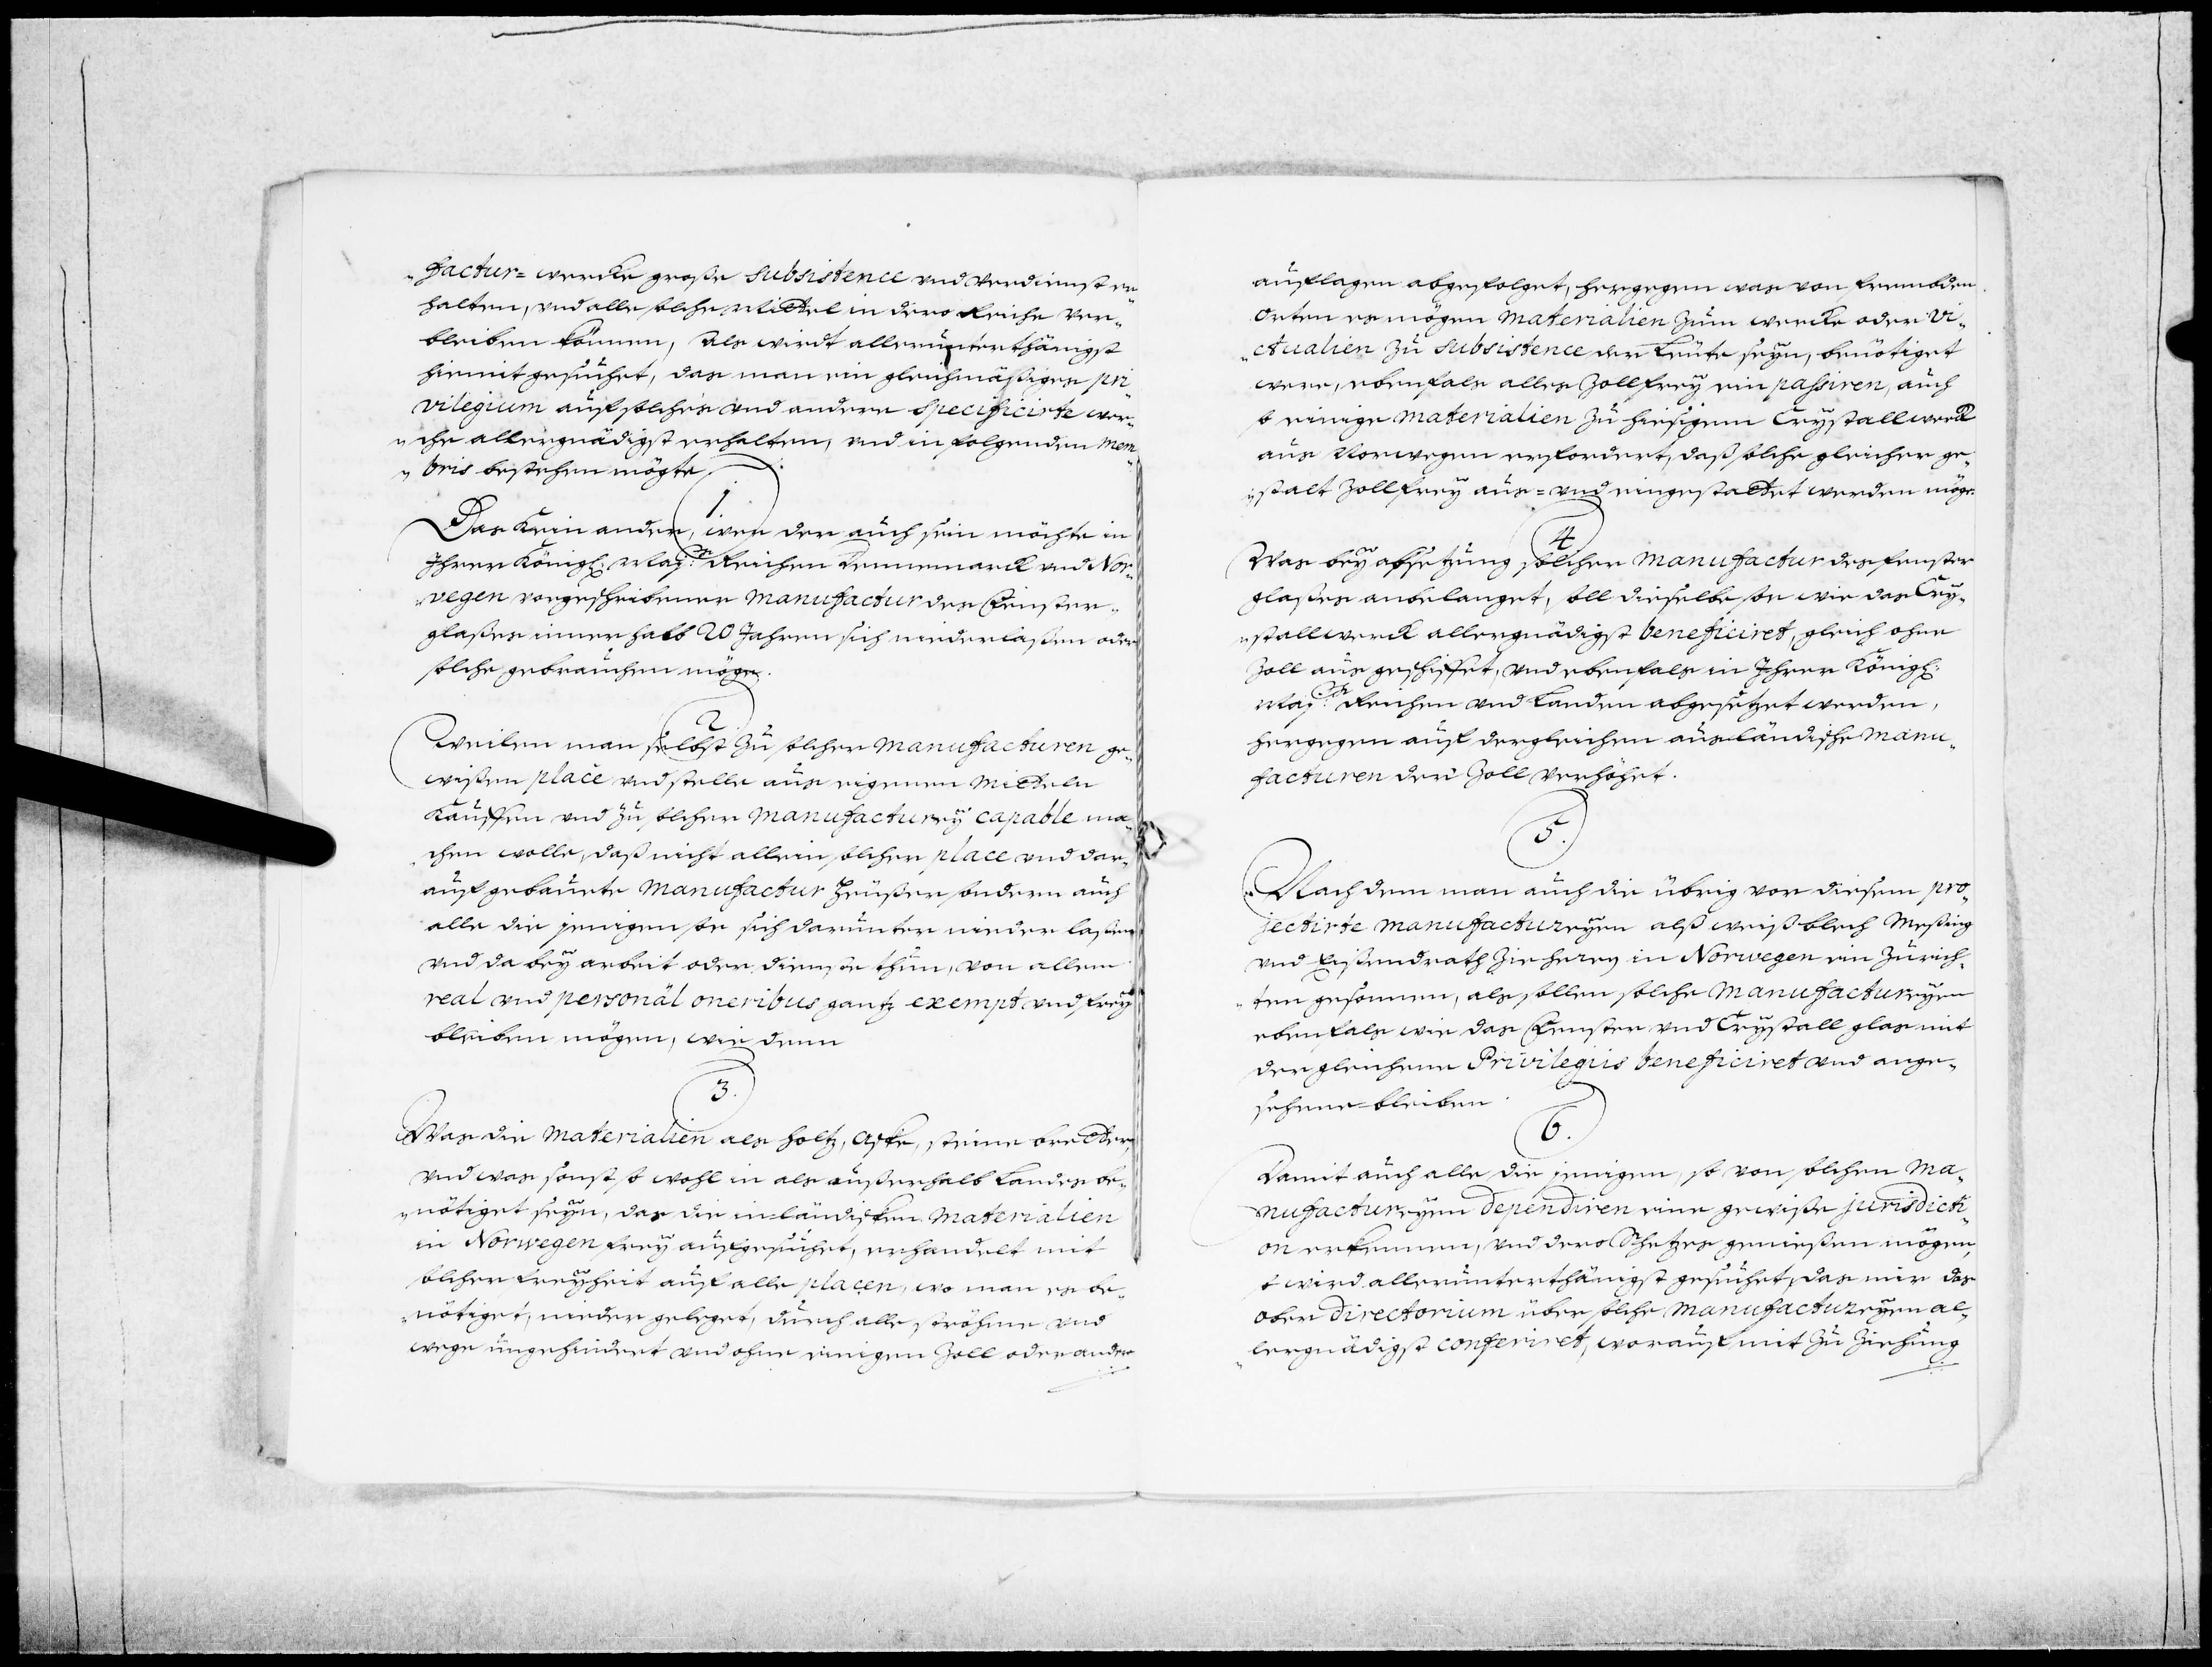 factur- wercke große subsistence und verdienst er„
halten, und alle solche Mittel in dero Reiche ver„
bleiben können, Als wirdt allerunterthänigst
hiemit gesuchet, das man ein gleichmäßiges pri
vilegium auf solches und andere specificirte wer„
cke allergnädigst erhalten, und in folgenden mem„
bris bestehen mögte.
1.
Das Kein ander, wer der auch sein möchte in
Ihrer Königl. Maj.tt Reichen Dennemarck und Nor„
vegen vorgeschriebener Manufactur des Fenster„
glaßes innerhalb 20 Jahren sich niederlaßen oder
solche gebrauchen möge.
2.
Weilen man selbst zu solcher manufacturen ge„
wißen place und stelle aus eigenen Mitteln
Kauffen und zu solcher Manufacturey capable ma„
chen wolle, daß nicht allein solcher place und dar„
auf gebauete Manufactur Heußer sondern auch
alle die jenigen so sich darunter nieder laßen
und da bey arbeit oder dienste thun, von allem
real und personal oneribus gantz exempt und frey
bleiben mögen, wie denn
3.
Was die Materialien als holtz, Aske, steine bretter,
und was sonst so wohl in als außerhalb Landes be„
nötiget seyn, das die inländischen Materialien
in Norwegen frey aufgesuchet, erhandelt mit
solcher freyheit auf alle placen, wo man es be„
nötiget, nieder geleget, durch alle ströhme und
wege ungehindert und ohne einigen Zoll oder andere
auflagen abgefolget, hergegen was von frembden
orten es mögen Materialien zum wercke oder Vi„
ctualien zu subsistence der Leute seyn, benötiget
were, ebenfals alles Zollfrey ein passiren, auch
so einige Materialien zu hiesigem Crystallwerck
aus Norwegen erfordert, daß solche gleicher ge„
stalt Zollfrey aus- und eingestattet werden möge.
4
Was bey absetzung solcher Manufactur des fenster
glaßes anbelanget, soll dieselbe so wie das Cry„
stallwerck allergnädigst beneficiret, gleich ohne
Zoll aus geschiffet, und ebenfals in Ihrer Königl:
Maj.tt Reichen und Landen abgesetzet werden,
hergegen auf dergleichen ausländische Manu„
facturen der Zoll verhöhet.
5.
Nach dem man auch die übrig vor diesem pro„
jectirte Manufactureyen alß weiß blech Meßing
und Eißendrath Zieherey in Norwegen ein zurich„
ten gesonnen, als sollen solche Manufactureyen
ebenfals wie das Fenster und Crystall glas mit
der gleichenn Privilegiis beneficiret und ange„
sehene bleiben.
6.
Damit auch alle die jenigen, so von solchen Ma„
nufactureyen dependiren eine gewiße jurisdicti„
on erkennen, und dero Schutzes genießen mögen,
so wird allerunterthänigst gesuchet, das mir das
ober Directorium über solche Manufactureyen al„
lergnädigst conferiret, worauf mit zu ziehung